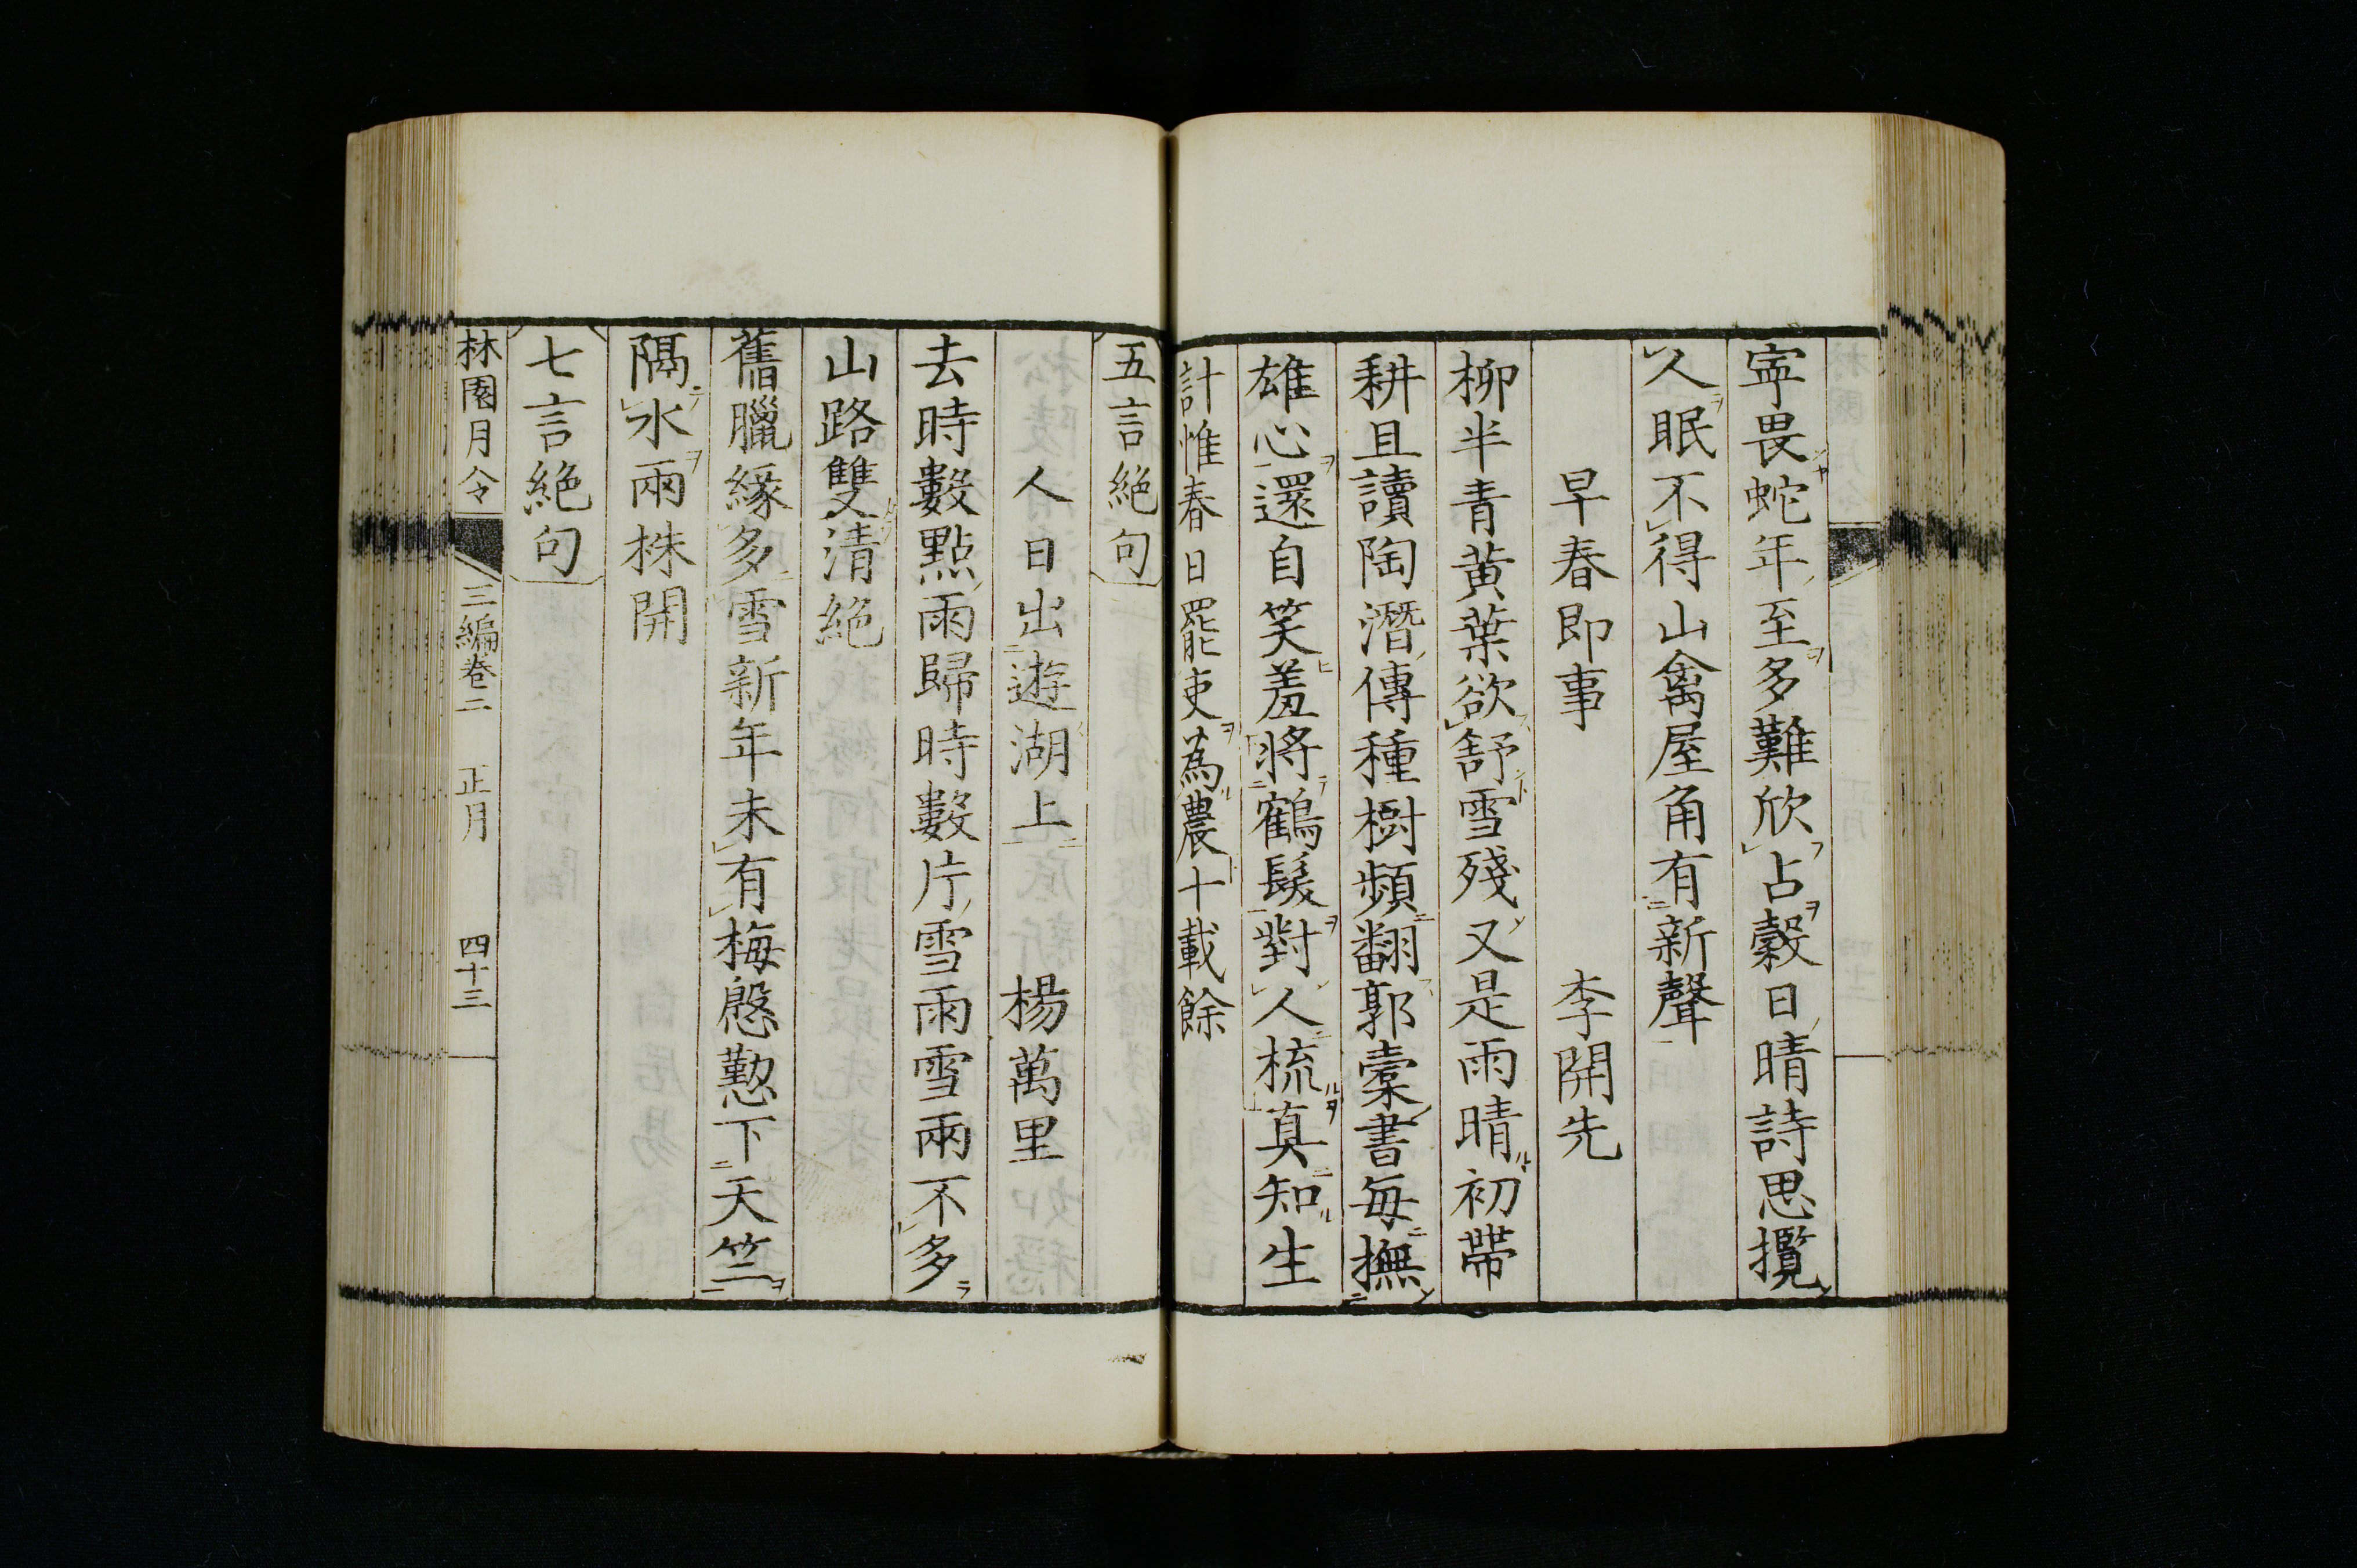 寕畏蛇年至多難欣占穀日晴詩思攪
人眠不得山禽屋角有新聲
早春即事　李開先
柳半青黃葉欲舒雪殘又是雨晴初帶
耕且讀陶潛傳種樹頻翻郭橐書每撫
雄心還自笑羞將鶴髮對人梳真知生
計惟春日罷吏為農十載餘
五言絕句
人日出遊湖上　楊萬里
去時數點雨歸時數片雪雨雪兩不多
山路雙清絕
舊臘緣多雪新年未有梅慇懃下天竺
隔水兩株開
七言絕句
林園月令　三編卷二　正月　四十三